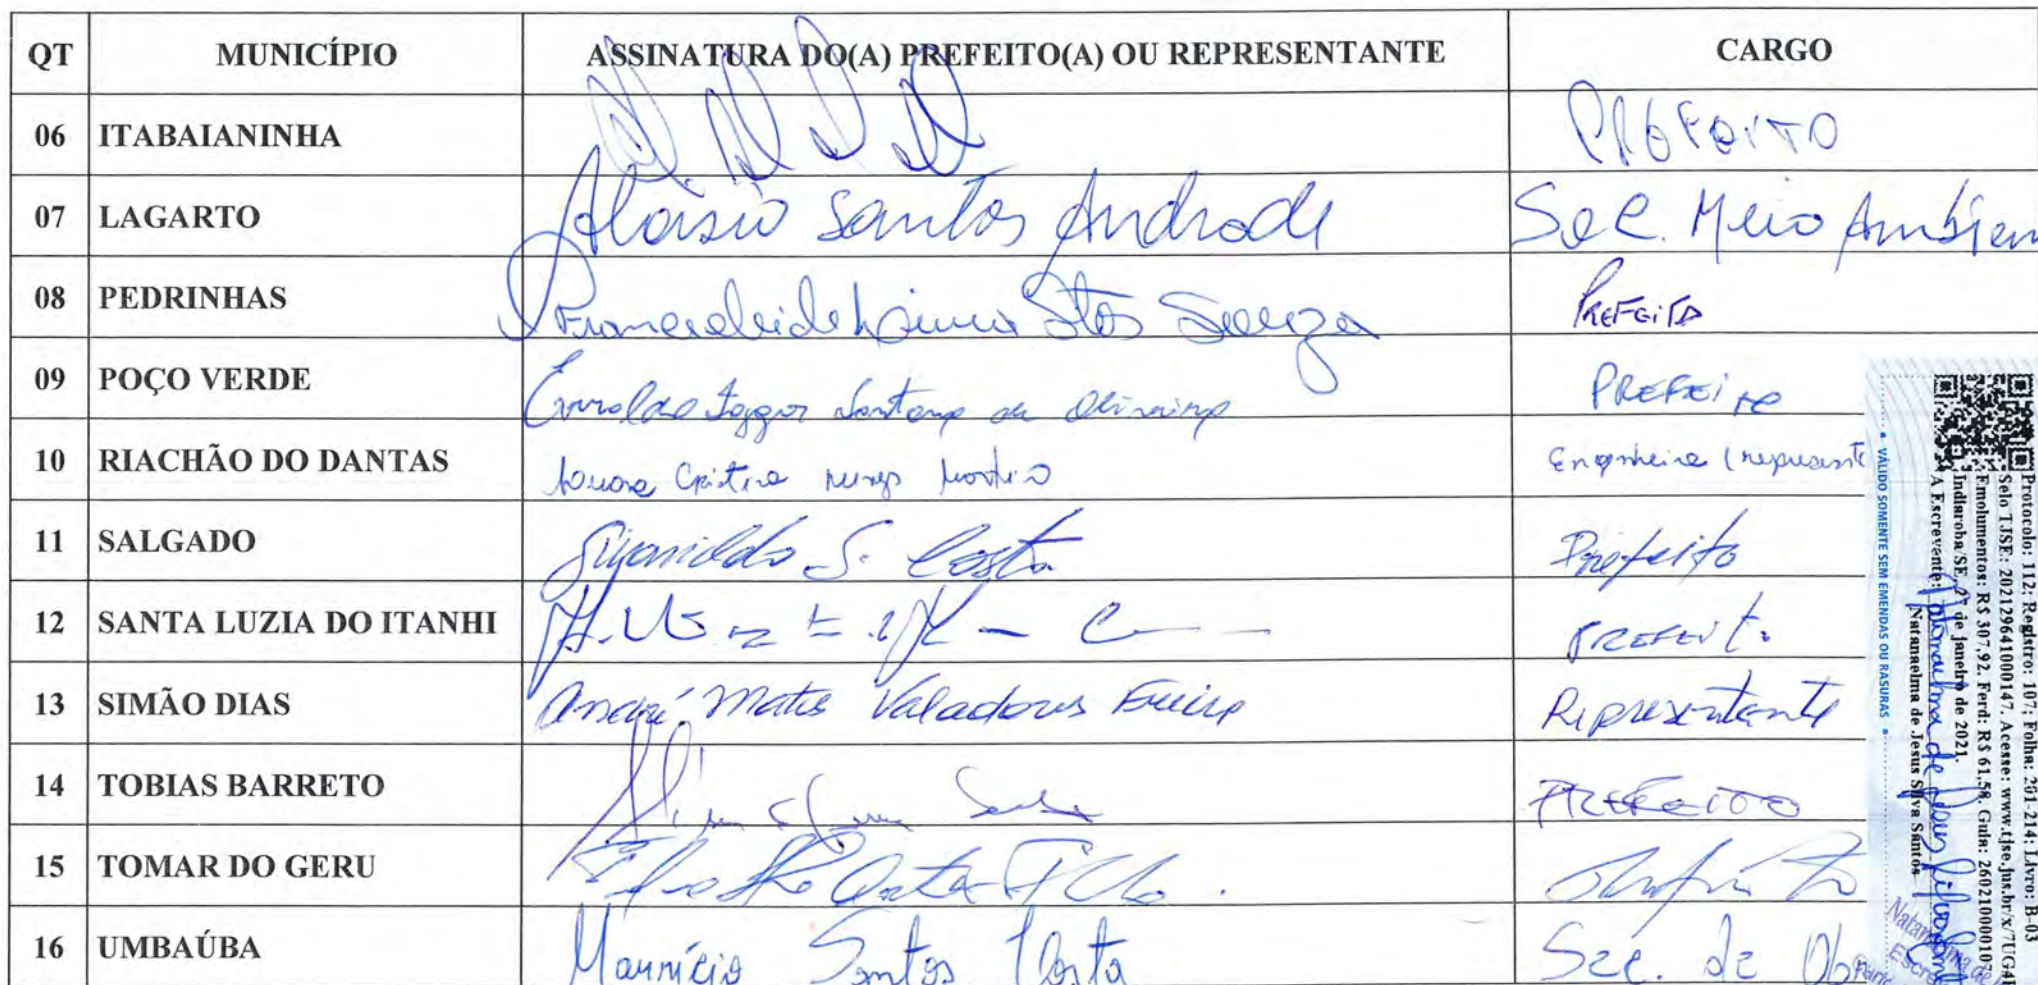 QT MUNICÍPIO ASSINATURA DO(A) PREFEITO(A) OU REPRESENTANTE CARGO
06 ITABAIANINHA PREFEITO
07 LAGARTO Aloísio Santos Andrade Sec. Meio Ambien
08 PEDRINHAS Stos Souza PREFEITA
09 POÇO VERDE Santana de Oliveira PREFEITO
10 RIACHÃO DO DANTAS Cristina Engenheira (represente
11 SALGADO S. Costa Prefeito
12 SANTA LUZIA DO ITANHI PREFEITO
13 SIMÃO DIAS André Matos Valadares Freire Representante
14 TOBIAS BARRETO PREFEITO
15 TOMAR DO GERU Prefeito
16 UMBAÚBA Maurício Santos Costa Sec. de Obras
Protocolo: 112: Registro: 107: Folha: 201-214: Livro: B-03
Selo TJSE: 202129641000147. Acesse: www.tjse.jus.br/x/7UG4
Emolumentos: R$ 307,92. Ferd: R$ 61,58. Guia: 260210000107
Indiaroba/SE, 27 de janeiro de 2021.
A Escrevente: Natanaelma de Jesus Silva Santos
Natanaelma de Jesus Silva Santos
• VÁLIDO SOMENTE SEM EMENDAS OU RASURAS •